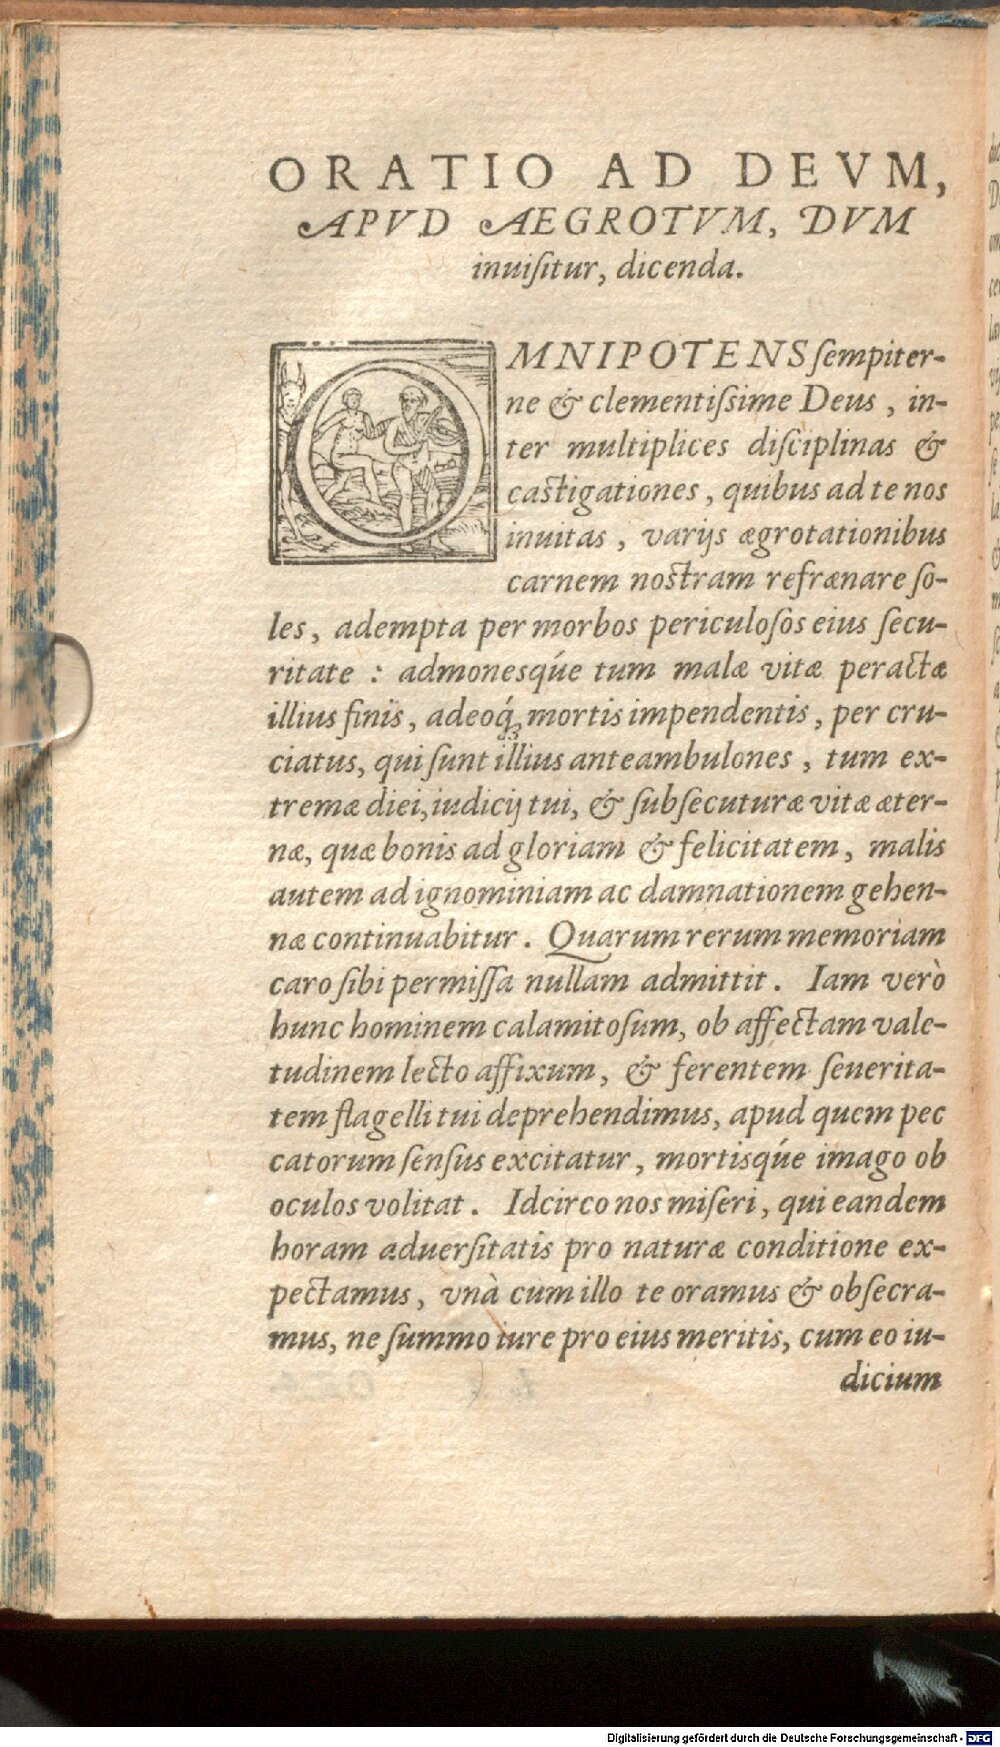 ORATIO AD DEVM,
APVD AEGROTVM, DVM
inuiſitur, dicenda.
OMNIPOTENS ſempiter-
ne & clementiſsime Deus, in-
ter multiplices diſciplinas &
caſtigationes, quibus ad te nos
inuitas, varijs ægrotationibus
carnem noſtram refrænare ſo-
les, adempta per morbos periculoſos eius ſecu-
ritate : admonesq́ue tum malæ vitæ peractæ
illius finis, adeoq́ꝫ mortis impendentis, per cru-
ciatus, qui ſunt illius anteambulones, tum ex-
tremæ diei, iudicij tui, & ſubſecuturæ vitæ æter-
næ, quæ bonis ad gloriam & felicitatem, malis
autem ad ignominiam ac damnationem gehen-
næ continuabitur. Quarum rerum memoriam
caro ſibi permiſſa nullam admittit. Iam verò
hunc hominem calamitoſum, ob affectam vale-
tudinem lecto affixum, & ferentem ſeuerita-
tem flagelli tui deprehendimus, apud quem pec
catorum ſenſus excitatur, mortisq́ue imago ob
oculos volitat. Idcirco nos miſeri, qui eandem
horam aduerſitatis pro naturæ conditione ex-
pectamus, vnà cum illo te oramus & obſecra-
mus, ne ſummo iure pro eius meritis, cum eo iu-
dicium
Digitalisierung gefördert durch die Deutsche Forschungsgemeinschaft - DFG